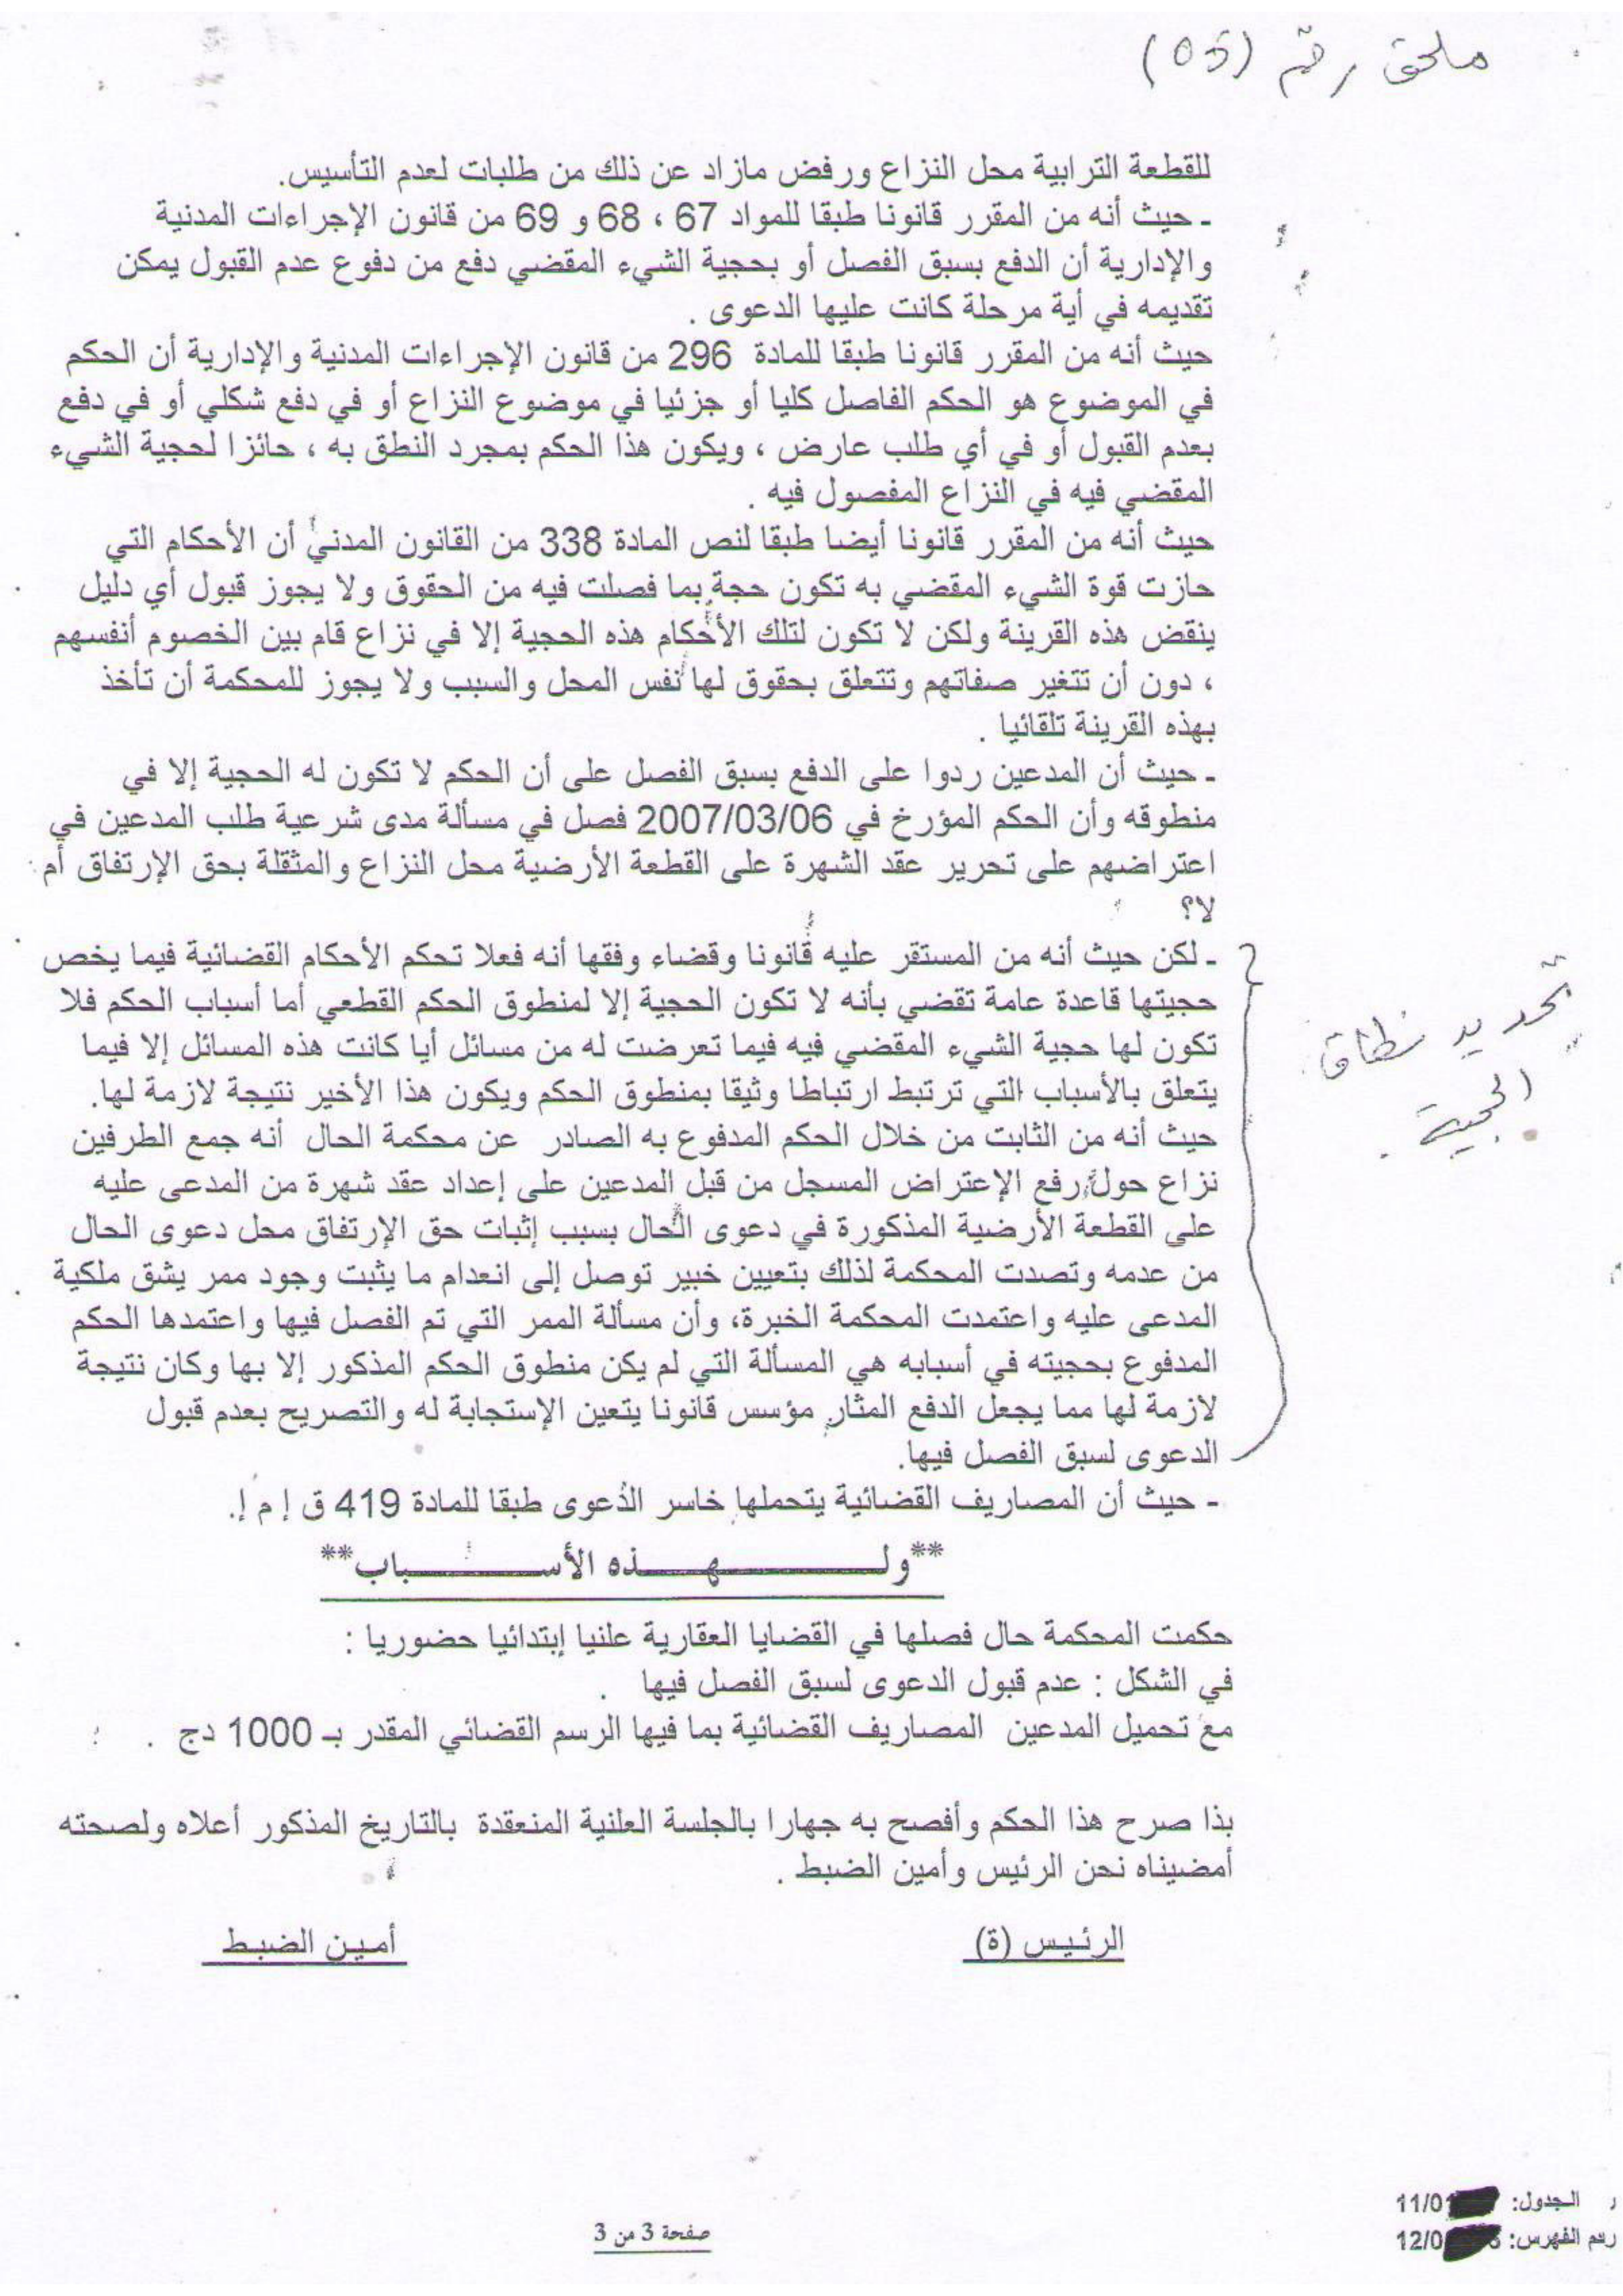 ملحق رقم (05)
للقطعة الترابية محل النزاع ورفض مازاد عن ذلك من طلبات لعدم التأسيس.
- حيث أنه من المقرر قانونا طبقا للمواد 67 ، 68 و 69 من قانون الإجراءات المدنية
والإدارية أن الدفع بسبق الفصل أو بحجية الشيء المقضي دفع من دفوع عدم القبول يمكن
تقديمه في أية مرحلة كانت عليها الدعوى .
حيث أنه من المقرر قانونا طبقا للمادة 296 من قانون الإجراءات المدنية والإدارية أن الحكم
في الموضوع هو الحكم الفاصل كليا أو جزئيا في موضوع النزاع أو في دفع شكلي أو في دفع
بعدم القبول أو في أي طلب عارض ، ويكون هذا الحكم بمجرد النطق به ، حائزا لحجية الشيء
المقضي فيه في النزاع المفصول فيه .
حيث أنه من المقرر قانونا أيضا طبقا لنص المادة 338 من القانون المدني أن الأحكام التي
حازت قوة الشيء المقضي به تكون حجة بما فصلت فيه من الحقوق ولا يجوز قبول أي دليل
ينقض هذه القرينة ولكن لا تكون لتلك الأحكام هذه الحجية إلا في نزاع قام بين الخصوم أنفسهم
، دون أن تتغير صفاتهم وتتعلق بحقوق لها نفس المحل والسبب ولا يجوز للمحكمة أن تأخذ
بهذه القرينة تلقائيا .
- حيث أن المدعين ردوا على الدفع بسبق الفصل على أن الحكم لا تكون له الحجية إلا في
منطوقه وأن الحكم المؤرخ في 2007/03/06 فصل في مسألة مدى شرعية طلب المدعين في
اعتراضهم على تحرير عقد الشهرة على القطعة الأرضية محل النزاع والمثقلة بحق الإرتفاق أم
لا؟
- لكن حيث أنه من المستقر عليه قانونا وقضاء وفقها أنه فعلا تحكم الأحكام القضائية فيما يخص
حجيتها قاعدة عامة تقضي بأنه لا تكون الحجية إلا لمنطوق الحكم القطعي أما أسباب الحكم فلا
تكون لها حجية الشيء المقضي فيه فيما تعرضت له من مسائل أيا كانت هذه المسائل إلا فيما
يتعلق بالأسباب التي ترتبط ارتباطا وثيقا بمنطوق الحكم ويكون هذا الأخير نتيجة لازمة لها.
تحديد نطاق
الحجية .
حيث أنه من الثابت من خلال الحكم المدفوع به الصادر عن محكمة الحال أنه جمع الطرفين
نزاع حول رفع الإعتراض المسجل من قبل المدعين على إعداد عقد شهرة من المدعى عليه
على القطعة الأرضية المذكورة في دعوى الحال بسبب إثبات حق الإرتفاق محل دعوى الحال
من عدمه وتصدت المحكمة لذلك بتعيين خبير توصل إلى انعدام ما يثبت وجود ممر يشق ملكية
المدعى عليه واعتمدت المحكمة الخبرة، وأن مسألة الممر التي تم الفصل فيها واعتمدها الحكم
المدفوع بحجيته في أسبابه هي المسألة التي لم يكن منطوق الحكم المذكور إلا بها وكان نتيجة
لازمة لها مما يجعل الدفع المثار مؤسس قانونا يتعين الإستجابة له والتصريح بعدم قبول
الدعوى لسبق الفصل فيها.
- حيث أن المصاريف القضائية يتحملها خاسر الدعوى طبقا للمادة 419 ق إ م إ.
**ولـــــــهـــــذه الأســـــــباب**
حكمت المحكمة حال فصلها في القضايا العقارية علنيا إبتدائيا حضوريا :
في الشكل : عدم قبول الدعوى لسبق الفصل فيها .
مع تحميل المدعين المصاريف القضائية بما فيها الرسم القضائي المقدر بـ 1000 دج .
بذا صرح هذا الحكم وأفصح به جهارا بالجلسة العلنية المنعقدة بالتاريخ المذكور أعلاه ولصحته
أمضيناه نحن الرئيس وأمين الضبط .
الرئيس (ة)
أمين الضبط
ر الجدول: 11/0
رقم الفهرس: 12/0
صفحة 3 من 3